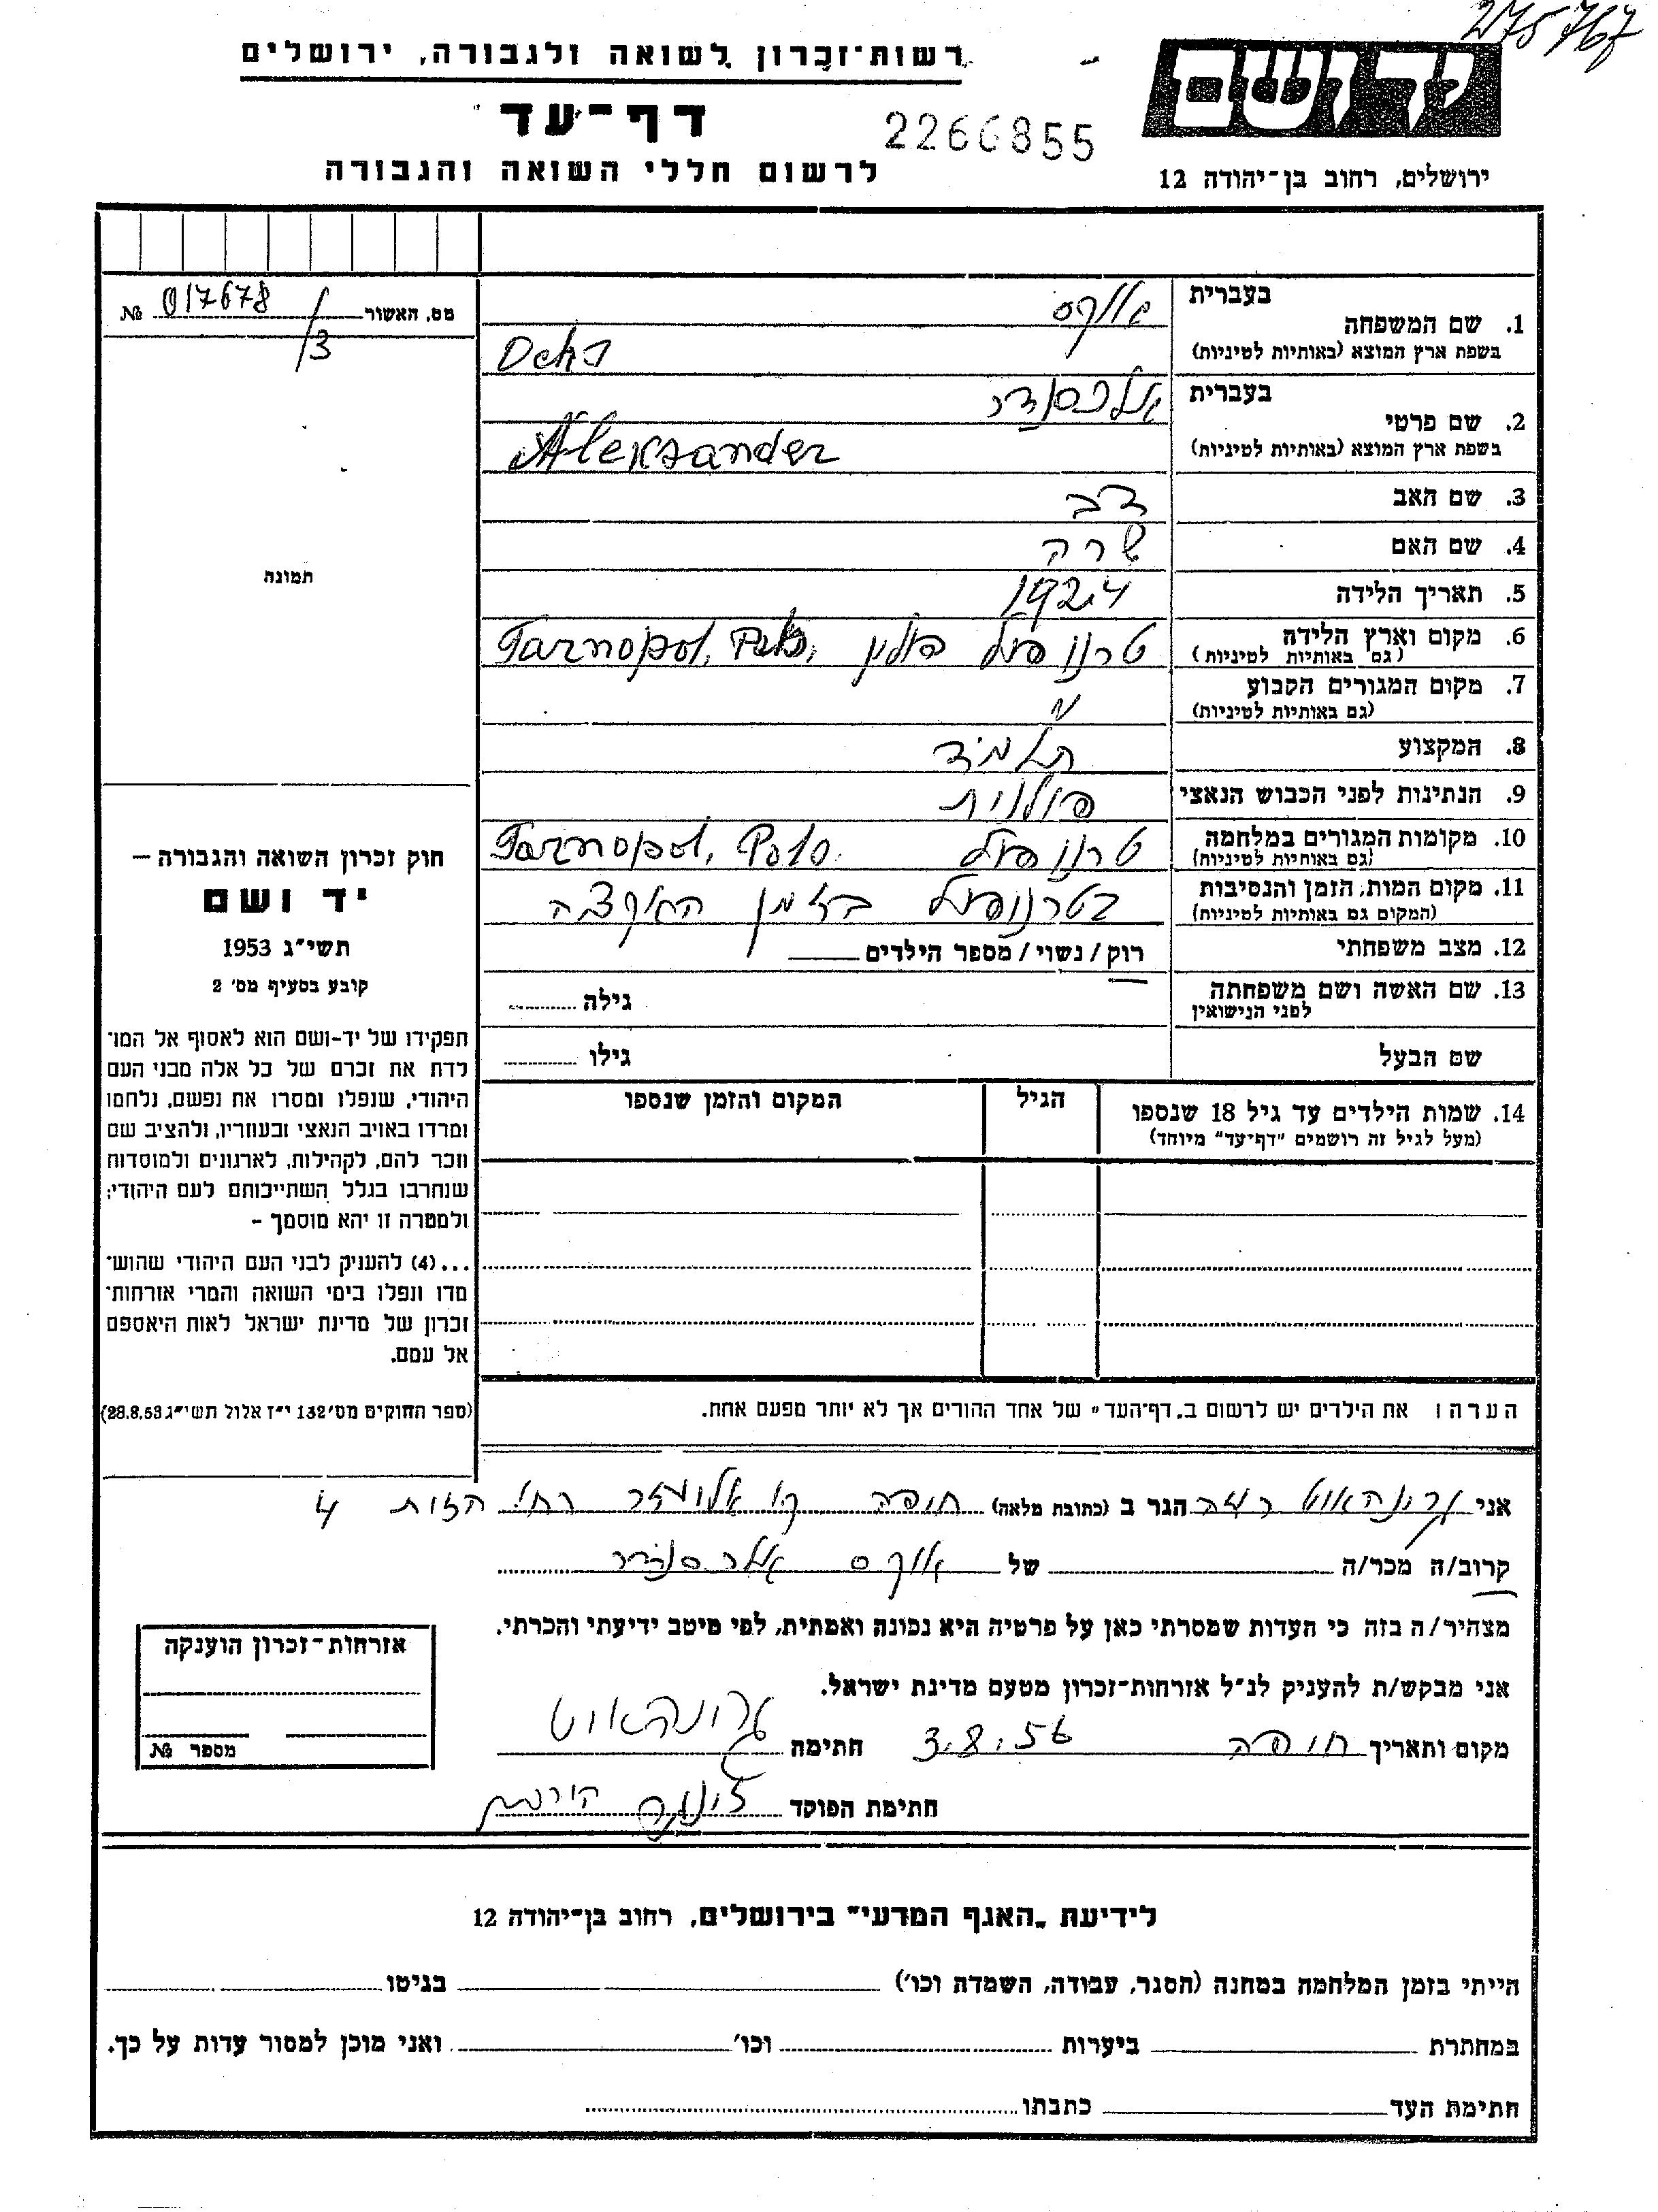 275767
רשות־זכרון לשואה ולגבורה, ירושלים
יד ושם
דף־עד
2266855
לרשום חללי השואה והגבורה
ירושלים, רחוב בן־יהודה 12
מס. האשור 017678 №
/3
תמונה
חוק זכרון השואה והגבורה –
יד ושם
תשי"ג 1953
קובע בסעיף מס' 2
תפקידו של יד-ושם הוא לאסוף אל המו־
לדת את זכרם של כל אלה מבני העם
היהודי, שנפלו ומסרו את נפשם, נלחמו
ומרדו באויב הנאצי ובעוזריו, ולהציב שם
וזכר להם, לקהילות, לארגונים ולמוסדות
שנחרבו בגלל השתייכותם לעם היהודי;
ולמטרה זו יהא מוסמך –
...(4) להעניק לבני העם היהודי שהוש־
מדו ונפלו בימי השואה והמרי אזרחות־
זכרון של מדינת ישראל לאות היאספם
אל עמם.
(ספר החוקים מס' 132 י"ז אלול תשי"ג 28.8.53)
בעברית
1. שם המשפחה אוקס
בשפת ארץ המוצא (באותיות לטיניות)
בעברית
2. שם פרטי אלכסנדר
בשפת ארץ המוצא (באותיות לטיניות) Aleksander
3. שם האב דב
4. שם האם שרה
5. תאריך הלידה 1924
6. מקום וארץ הלידה טרנופול פולין Tarnopol,
(גם באותיות לטיניות)
7. מקום המגורים הקבוע "
(גם באותיות לטיניות)
8. המקצוע תלמיד
9. הנתינות לפני הכבוש הנאצי פולנית
10. מקומות המגורים במלחמה טרנופול Tarnopol, Polo.
(גם באותיות לטיניות)
11. מקום המות, הזמן והנסיבות בטרנופול בזמן האקציה
(המקום גם באותיות לטיניות)
12. מצב משפחתי רוק / נשוי / מספר הילדים
13. שם האשה ושם משפחתה גילה
לפני הנישואין
שם הבעל גילו
14. שמות הילדים עד גיל 18 שנספו הגיל המקום והזמן שנספו
(מעל לגיל זה רושמים "דף־עד" מיוחד)
הערה: את הילדים יש לרשום ב"דף־העד" של אחד ההורים אך לא יותר מפעם אחת.
אני הגר ב (כתובת מלאה) חיפה 4
קרוב/ה מכר/ה של אוקס אלכסנדר
מצהיר/ה בזה כי העדות שמסרתי כאן על פרטיה היא נכונה ואמתית, לפי מיטב ידיעתי והכרתי.
אני מבקש/ת להעניק לנ"ל אזרחות־זכרון מטעם מדינת ישראל.
מקום ותאריך חיפה 3.8.56 חתימה
חתימת הפוקד
אזרחות־זכרון הוענקה
מספר №
לידיעת "האגף המדעי" בירושלים, רחוב בן־יהודה 12
הייתי בזמן המלחמה במחנה (הסגר, עבודה, השמדה וכו') בגיטו
במחתרת ביערות וכו' ואני מוכן למסור עדות על כך.
חתימת העד כתבתו